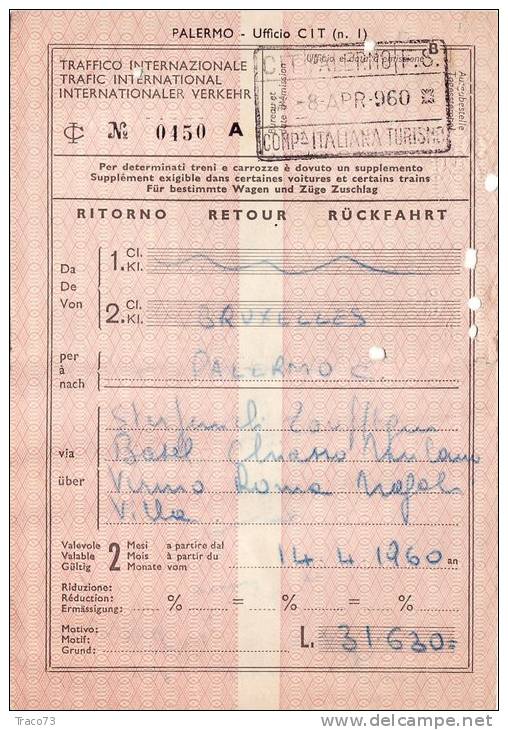 PALERMO - Ufficio CIT (n. 1)
TRAFFICO INTERNAZIONALE
TRAFIC INTERNATIONAL
INTERNATIONALER VERKEHR
№ 0450 A
B
Ufficio e data d'emissione
Bureau et date d'émission
Ausgabestelle
C.I.T. PALERMO F.S.
-8-APR-960
COMPª ITALIANA TURISMO
Per determinati treni e carrozze è dovuto un supplemento
Supplément exigible dans certaines voitures et certains trains
Für bestimmte Wagen und Züge Zuschlag
RITORNO RETOUR RÜCKFAHRT
Da
De
Von
1. Cl.
Kl.
2. Cl.
Kl.
BRUXELLES
per
à
nach
PALERMO C.
via
über
Basel Chiasso Milano
Roma Napoli
Villa
Valevole
Valable
Gültig
2
Mesi a partire dal
Mois à partir du
Monate vom
14.4.1960 an
Riduzione:
Réduction:
Ermässigung:
% = % = %
Motivo:
Motif:
Grund:
L. 31630=
Traco73
delcampe.net